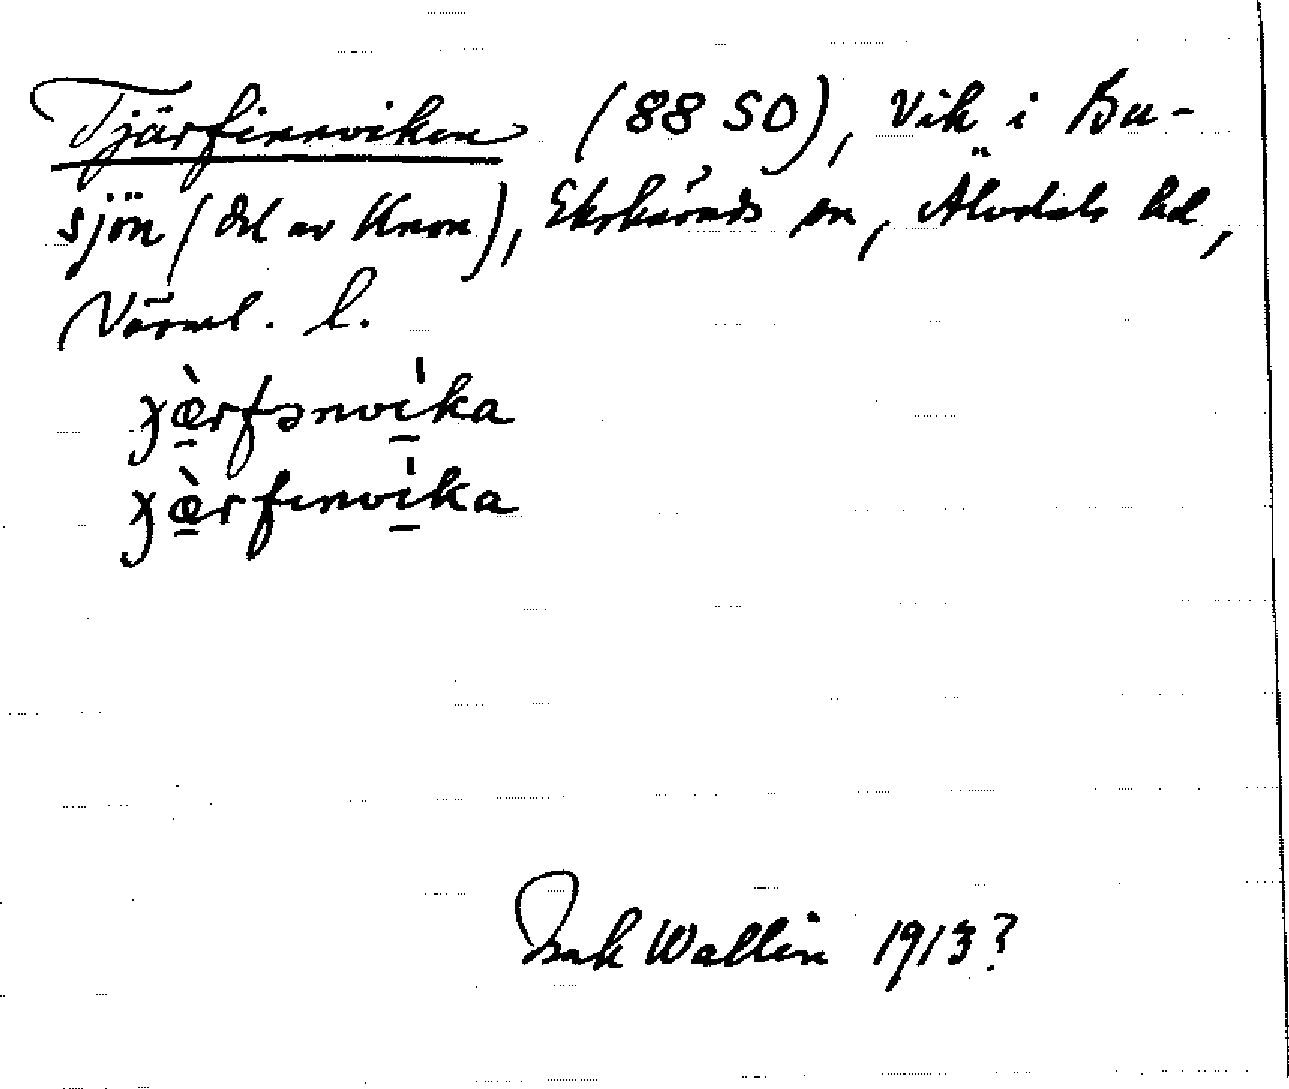 Tjärfinnviken (88 SO), Vik i Bu-
sjön (del av Knon), Ekshärads sn, Älvdals hd,
Värml. l.
ɟæ̀rfənvika
ɟæ̀rfinvika
Isak Wallin 1913?